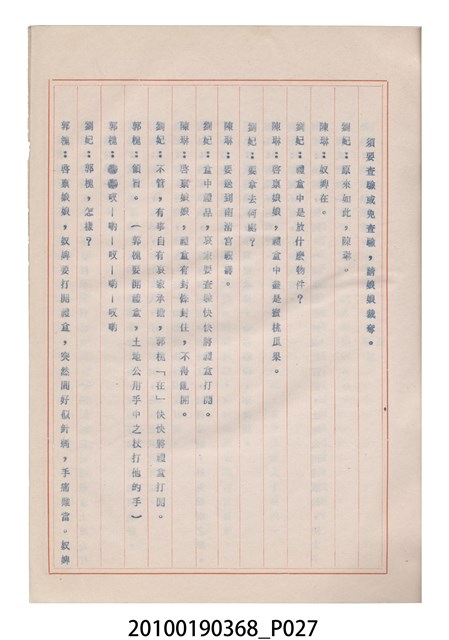 須要查驗或免查驗，請娘娘裁奪。
劉妃：原來如此，陳琳。
陳琳：奴婢在。
劉妃：禮盒中是放什麼物件？
陳琳：啓禀娘娘，禮盒中盡是蜜桃瓜果。
劉妃：要拿去何處？
陳琳：要送到南清宮祝壽。
劉妃：盒中禮品，哀家要查驗快快將禮盒打開。
陳琳：啓禀娘娘，禮盒有封條封住，不得亂開。
劉妃：不管，有事自有哀家承擔，郭槐「在」快快將禮盒打開。
郭槐：領旨。（郭槐要開禮盒，土地公用手中之杖打他的手）
郭槐：哎－喲－哎－喲－哎喲
劉妃：郭槐，怎樣？
郭槐：啓禀娘娘，奴婢要打開禮盒，突然間好似針刺，手痛難當。奴婢
20100190368_P027